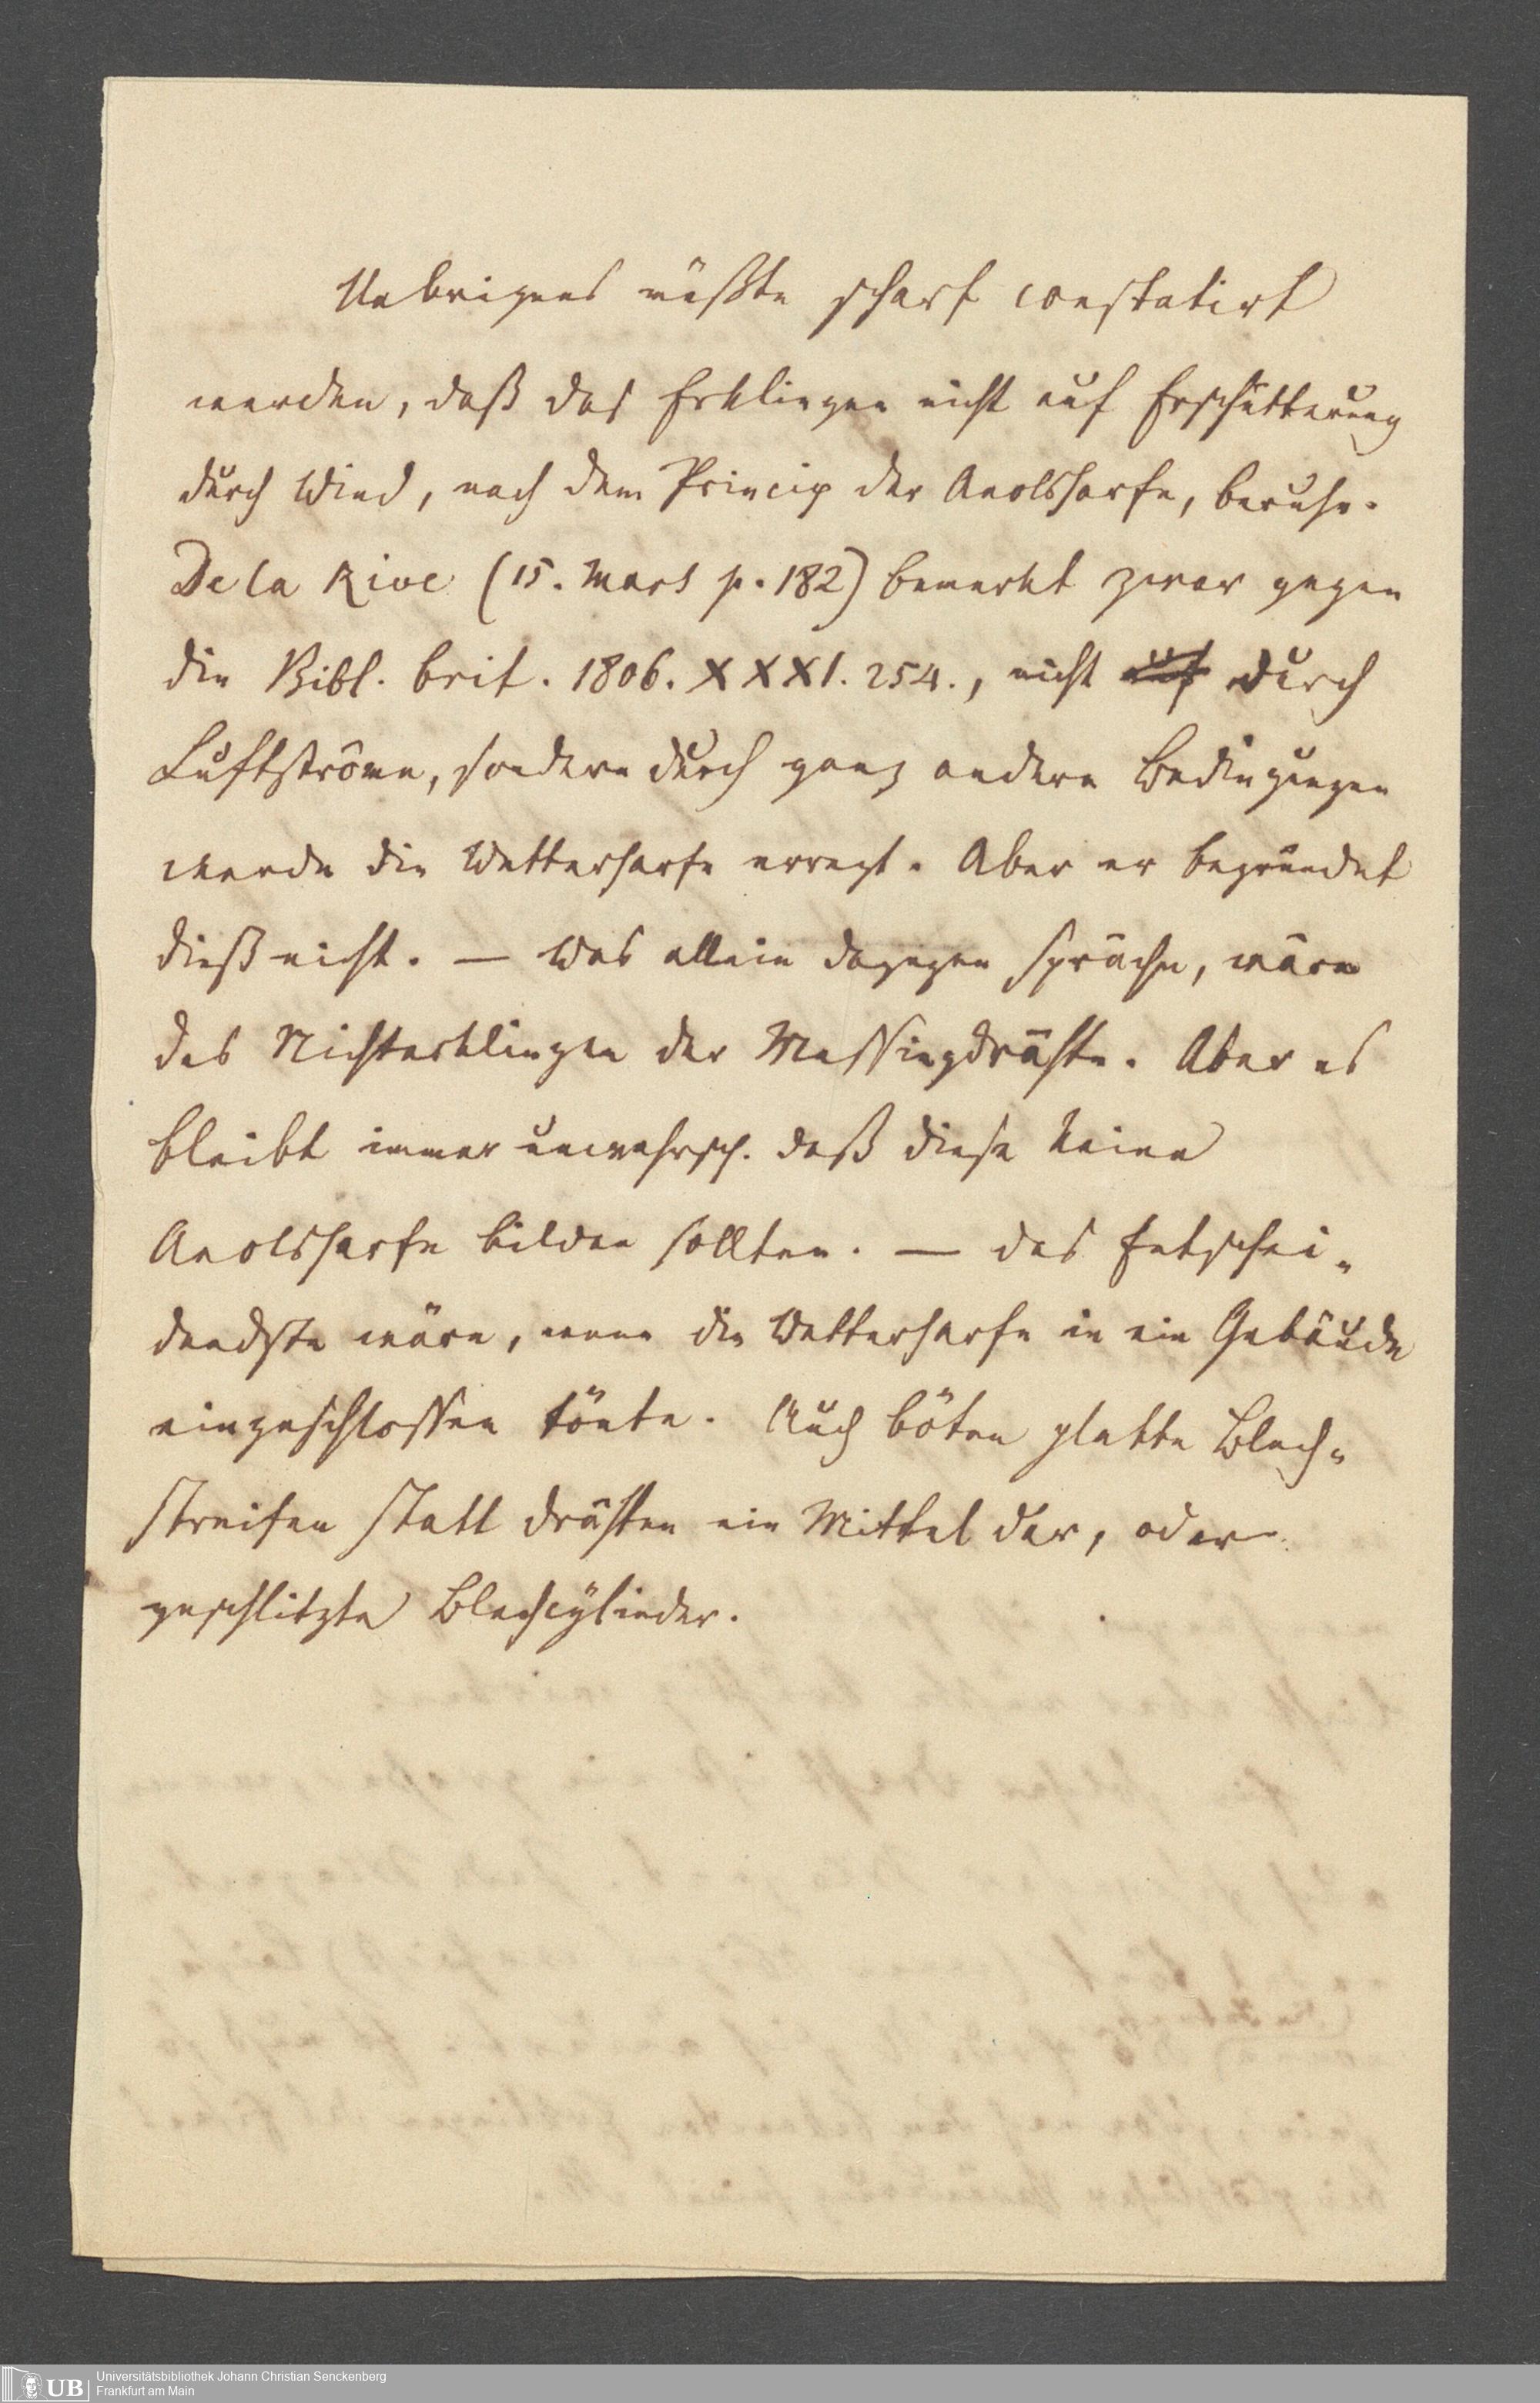 Uebrigens müßte scharf constatirt
werden, daß das Erklingen nicht auf Erschütterung
durch Wind, nach dem Princip der Aeolsharfe, beruhe.
De la Rive (15. Mars p. 182) bemerkt zwar gegen
die Bibl. brit. 1806. XXXI. 254., nicht auf durch
Luftströme, sondern durch ganz andere Bedingungen
werde die Wetterharfe erregt. Aber er begründet
dieß nicht. — Was allein dagegen spräche, wäre
das Nichterklingen der Messingdrähte. Aber es
bleibt immer unwahrsch. daß diese keine
Aeolsharfe bilden sollten. — das Entschei-
dendste wäre, wenn die Wetterharfe in ein Gebäude
eingeschlossen tönte. Auch böten platte Blech-
streifen statt Drähten ein Mittel dar, oder
geschlitzte Blechcylinder.
UB
Universitätsbibliothek Johann Christian Senckenberg
Frankfurt am Main